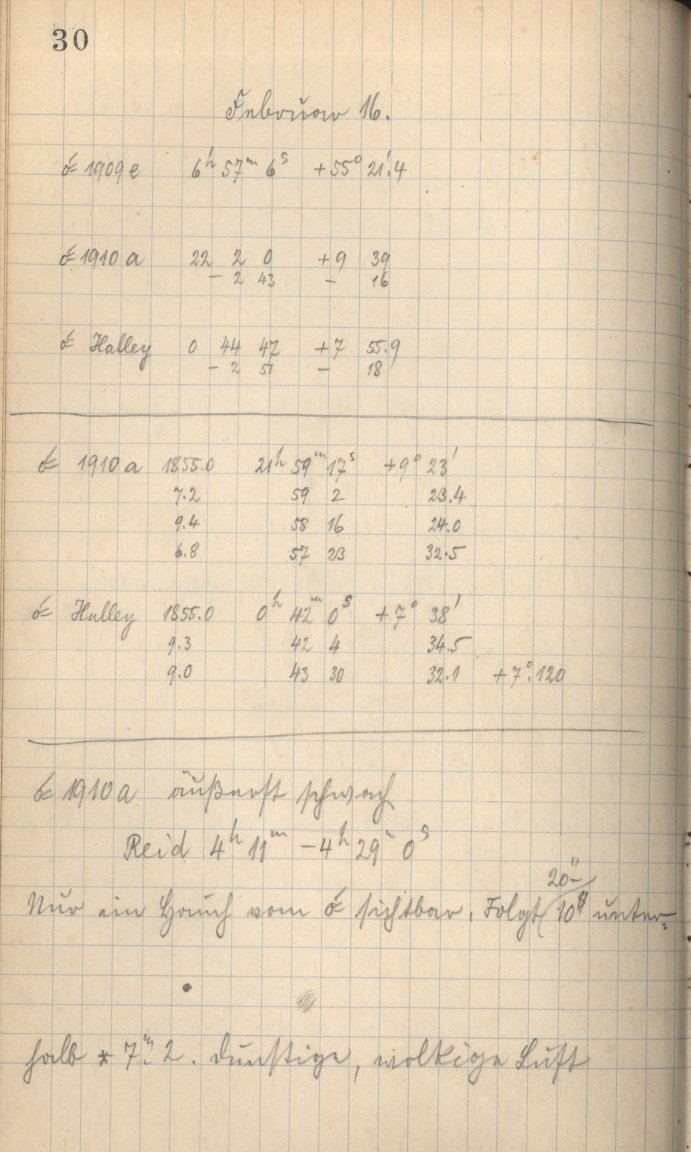 30
Februar 16.
☄ 1909 e 6h 57m 6s +55° 21'.4
☄ 1910 a 22 2 0 +9 39
− 2 43 − 16
☄ Halley 0 44 47 +7 55.9
− 2 51 − 18
☄ 1910 a 1855.0 21h 59m 17s +9° 23'
7.2 59 2 23.4
9.4 58 16 24.0
6.8 57 23 32.5
☄ Halley 1855.0 0h 42m 0s +7° 38'
9.3 42 4 34.5
9.0 43 30 32.1 +7°.120
☄ 1910 a äußerst schwach
Reid 4h 11m − 4h 29m 0s
20−
Nur ein Hauch vom ☄ sichtbar. Folgt 10s unter-
halb * 7m.2. Dunstige, wolkige Luft